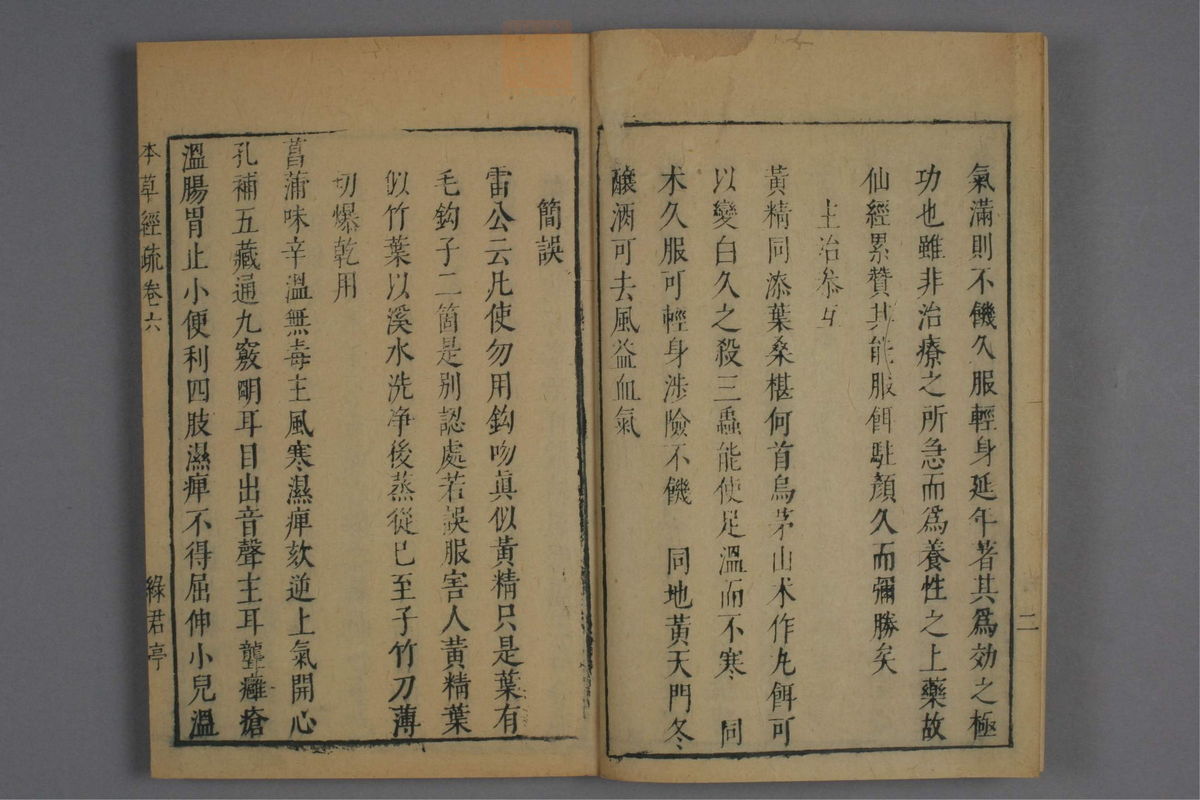 氣滿則不饑久服輕身延年著其爲効之極
功也雖非治療之所急而爲養性之上藥故
仙經累贊其能服餌駐顏久而彌勝矣
主治叅互
黃精同漆葉桑椹何首烏茅山术作丸餌可
以變白久之殺三蟲能使足溫而不寒 同
术久服可輕身涉險不饑 同地黃天門冬
釀酒可去風益血氣
二
簡誤
雷公云凡使勿用鈎吻眞似黃精只是葉有
毛鈎子二箇是別認處若誤服害人黃精葉
似竹葉以溪水洗净後蒸從巳至子竹刀薄
切爆乾用
菖蒲味辛溫無毒主風寒濕痺欬逆上氣開心
孔補五藏通九竅明耳目出音聲主耳聾癰瘡
溫腸胃止小便利四肢濕痺不得屈伸小兒溫
本草經疏卷六
綠君亭